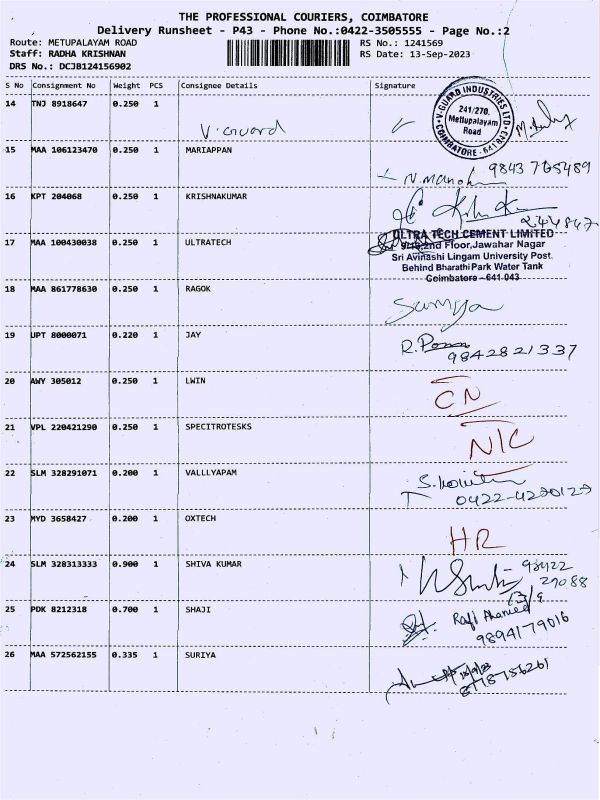 THE PROFESSIONAL COURIERS, COIMBATORE
Delivery Runsheet - P43 - Phone No.:0422-3505555 - Page No.:2
Route: METUPALAYAM ROAD RS No.: 1241569
Staff: RADHA KRISHNAN RS Date: 13-Sep-2023
DRS No.: DCJB124156902
S No Consignment No Weight PCS Consignee Details Signature
14 TNJ 8918647 0.250 1 V. Guard
V-GUARD INDUSTRIES LTD. COIMBATORE - 641
241/270,
Mettupalayam
Road
15 MAA 106123470 0.250 1 MARIAPPAN
9843 765489
16 KPT 204068 0.250 1 KRISHNAKUMAR
244847
17 MAA 100430038 0.250 1 ULTRATECH
ULTRA TECH CEMENT LIMITED
2nd Floor, Jawahar Nagar
Sri Avinashi Lingam University Post.
Behind Bharathi Park Water Tank
Coimbatore - 641 043
18 MAA 861778630 0.250 1 RAGOK
19 UPT 8000071 0.220 1 JAY
9842821337
20 AWY 305012 0.250 1 LWIN CN
21 VPL 220421290 0.250 1 SPECITROTESKS N/C
22 SLM 328291071 0.200 1 VALLLYAPAM
0422-4220123
23 MYD 3658427 0.200 1 OXTECH HR
24 SLM 328313333 0.900 1 SHIVA KUMAR 98422
27088
13/9
25 PDK 8212318 0.700 1 SHAJI
9894179016
26 MAA 572562155 0.335 1 SURIYA